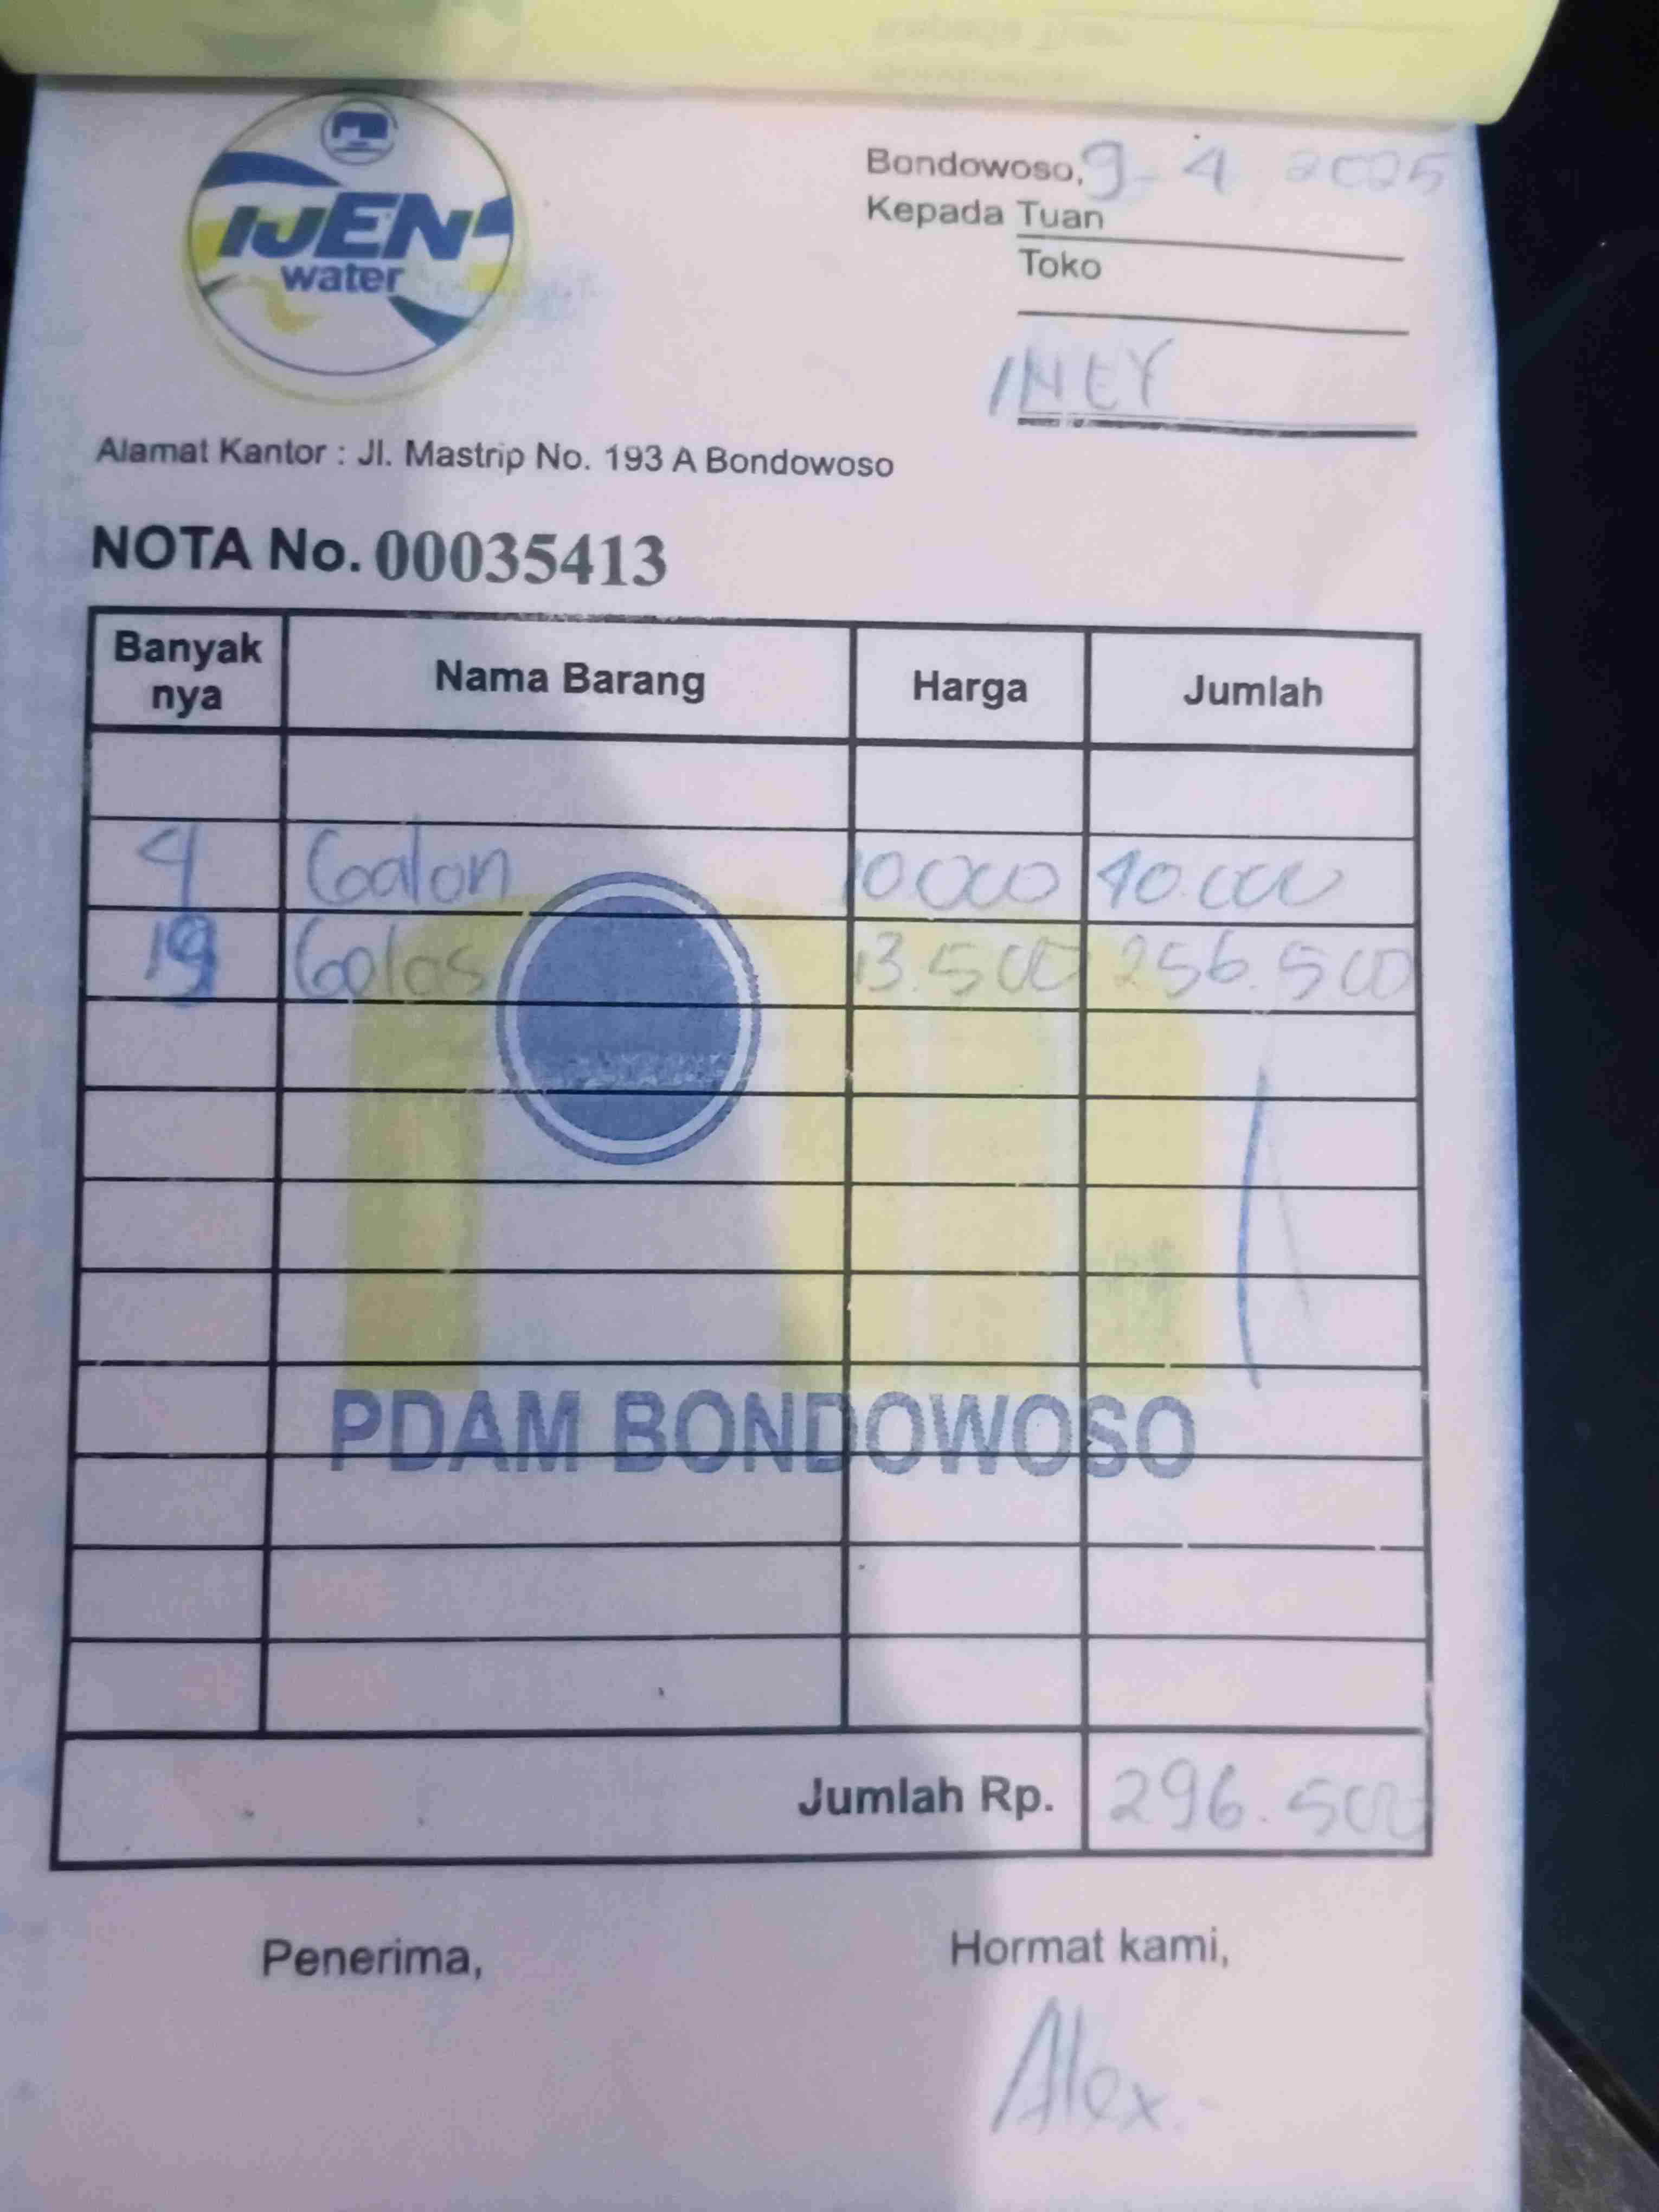 IJEN
water
Bondowoso, 9-4 2025
Kepada Tuan
Toko
INEY
Alamat Kantor : Jl. Mastrip No. 193 A Bondowoso
NOTA No. 00035413
Banyak nya Nama Barang Harga Jumlah
4 Galon 10000 40.000
19 Gelas 13.500 256.500
PDAM BONDOWOSO
Jumlah Rp. 296.500
Penerima, Hormat kami,
Alex.